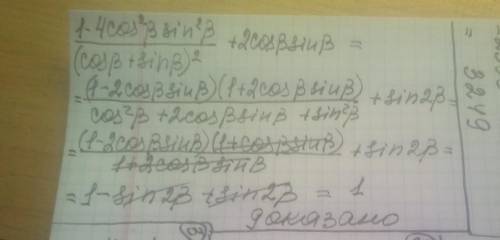 (1-4cos²β sin²β)/(cosβ + sinβ)² + 2cosβ sinβ =
= (1-2cosβ sinβ)(1+2cosβ sinβ)/(cos²β + 2cosβ sinβ + sin²β) + sin2β =
= (1-2cosβ sinβ)(1+cosβ sinβ)/(1+2cosβ sinβ) + sin2β =
= 1 - sin2β + sin2β = 1
доказано
3249
=